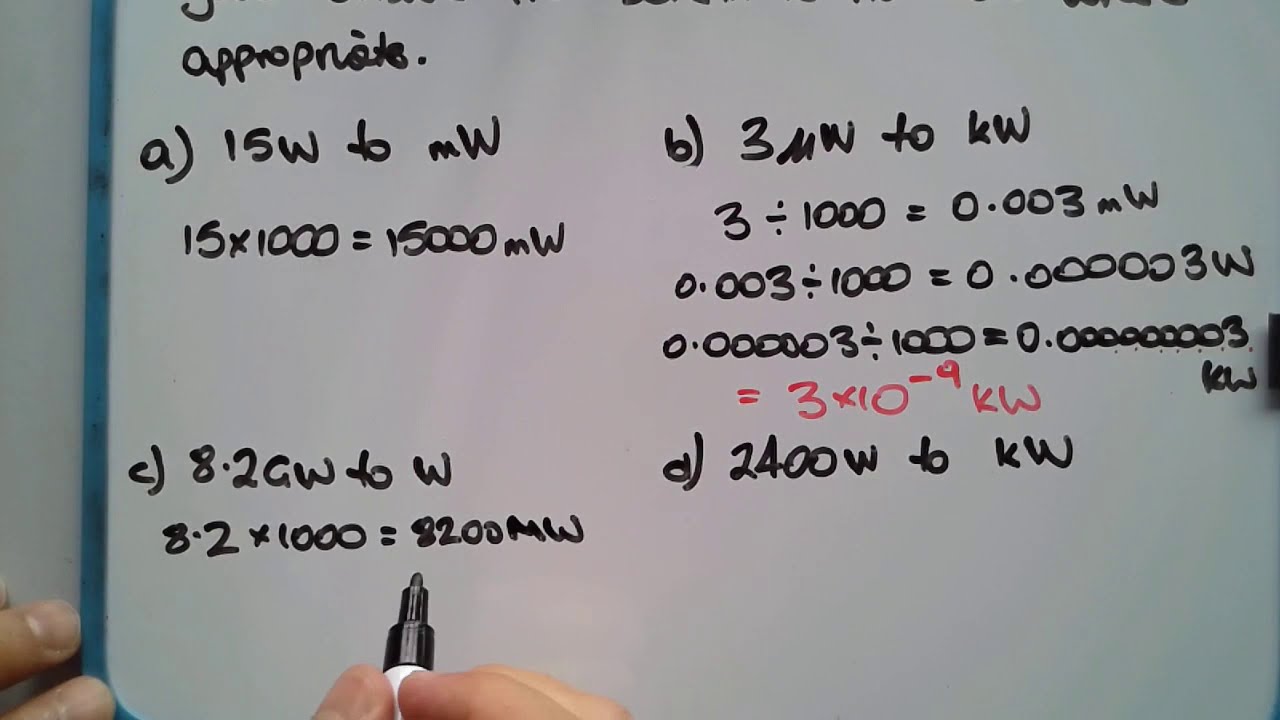 appropriate.
a) 15W to mW
15×1000 = 15000mW
b) 3μW to kW
3 ÷ 1000 = 0.003mW
0.003÷1000 = 0.000003W
0.000003÷1000 = 0.000000003
kW
= 3×10⁻⁹ kW
c) 8.2GW to W
8.2×1000 = 8200MW
d) 2400W to kW